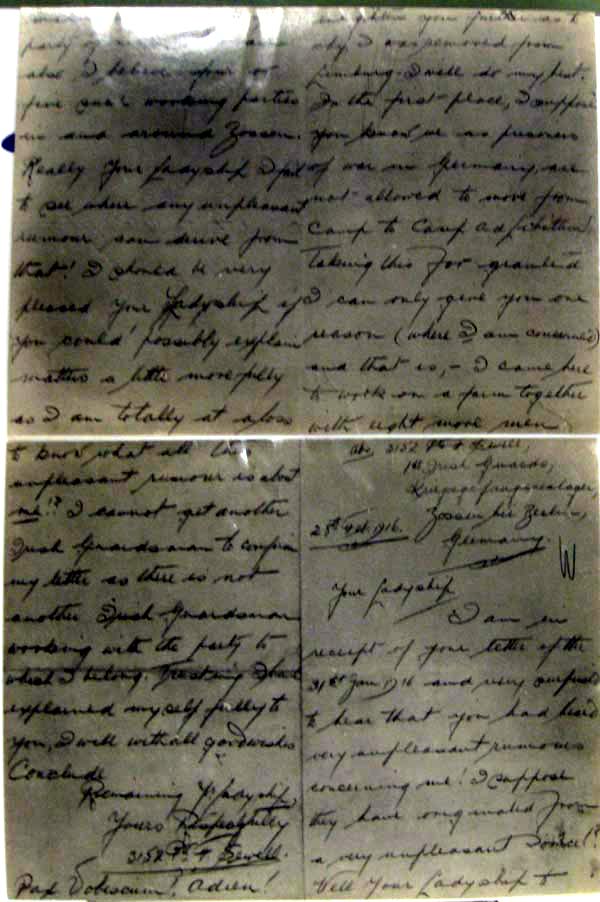 Abs. 3152 Pte T Sewell,
1st Irish Guards,
Kriegsgefangenenlager,
Zossen bei Berlin,
Germany.
28th Feb. 1916.
Your Ladyship
I am in
receipt of your letter of the
31st Jan 1916 and very surprised
to hear that you had heard
very unpleasant rumours
concerning me! I suppose
they have originated from
a very unpleasant source!?
Well Your Ladyship to
enlighten you further as to
why I was removed from
Limburg. I will do my best.
In the first place, I suppose
you know we as prisoners
of war in Germany, are
not allowed to move from
Camp to Camp ad libitum!
Taking this for granted
I can only give you one
reason (where I am concerned)
and that is,- I came here
to work on a farm together
with eight more men
party of
also I believe four or
five such working parties
in and around Zossen.
Really Your Ladyship I fail
to see where any unpleasant
rumour can derive from
that! I should be very
pleased Your Ladyship if
you could possibly explain
matters a little more fully
as I am totally at a loss
to know what all this
unpleasant rumour is about
me!? I cannot get another
Irish Guardsman to confirm
my letter as there is not
another Irish Guardsman
working with the party to
which I belong. Trusting I have
explained myself fully to
you, I will with all good wishes
Conclude
Remaining Yr Ladyship
Yours Respectfully
3152 Pte T Sewell.
Pax Vobiscum! Adieu!
W